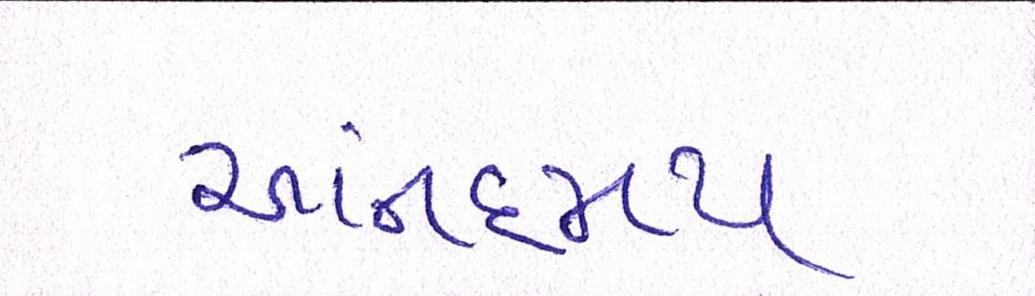 આંનદમય